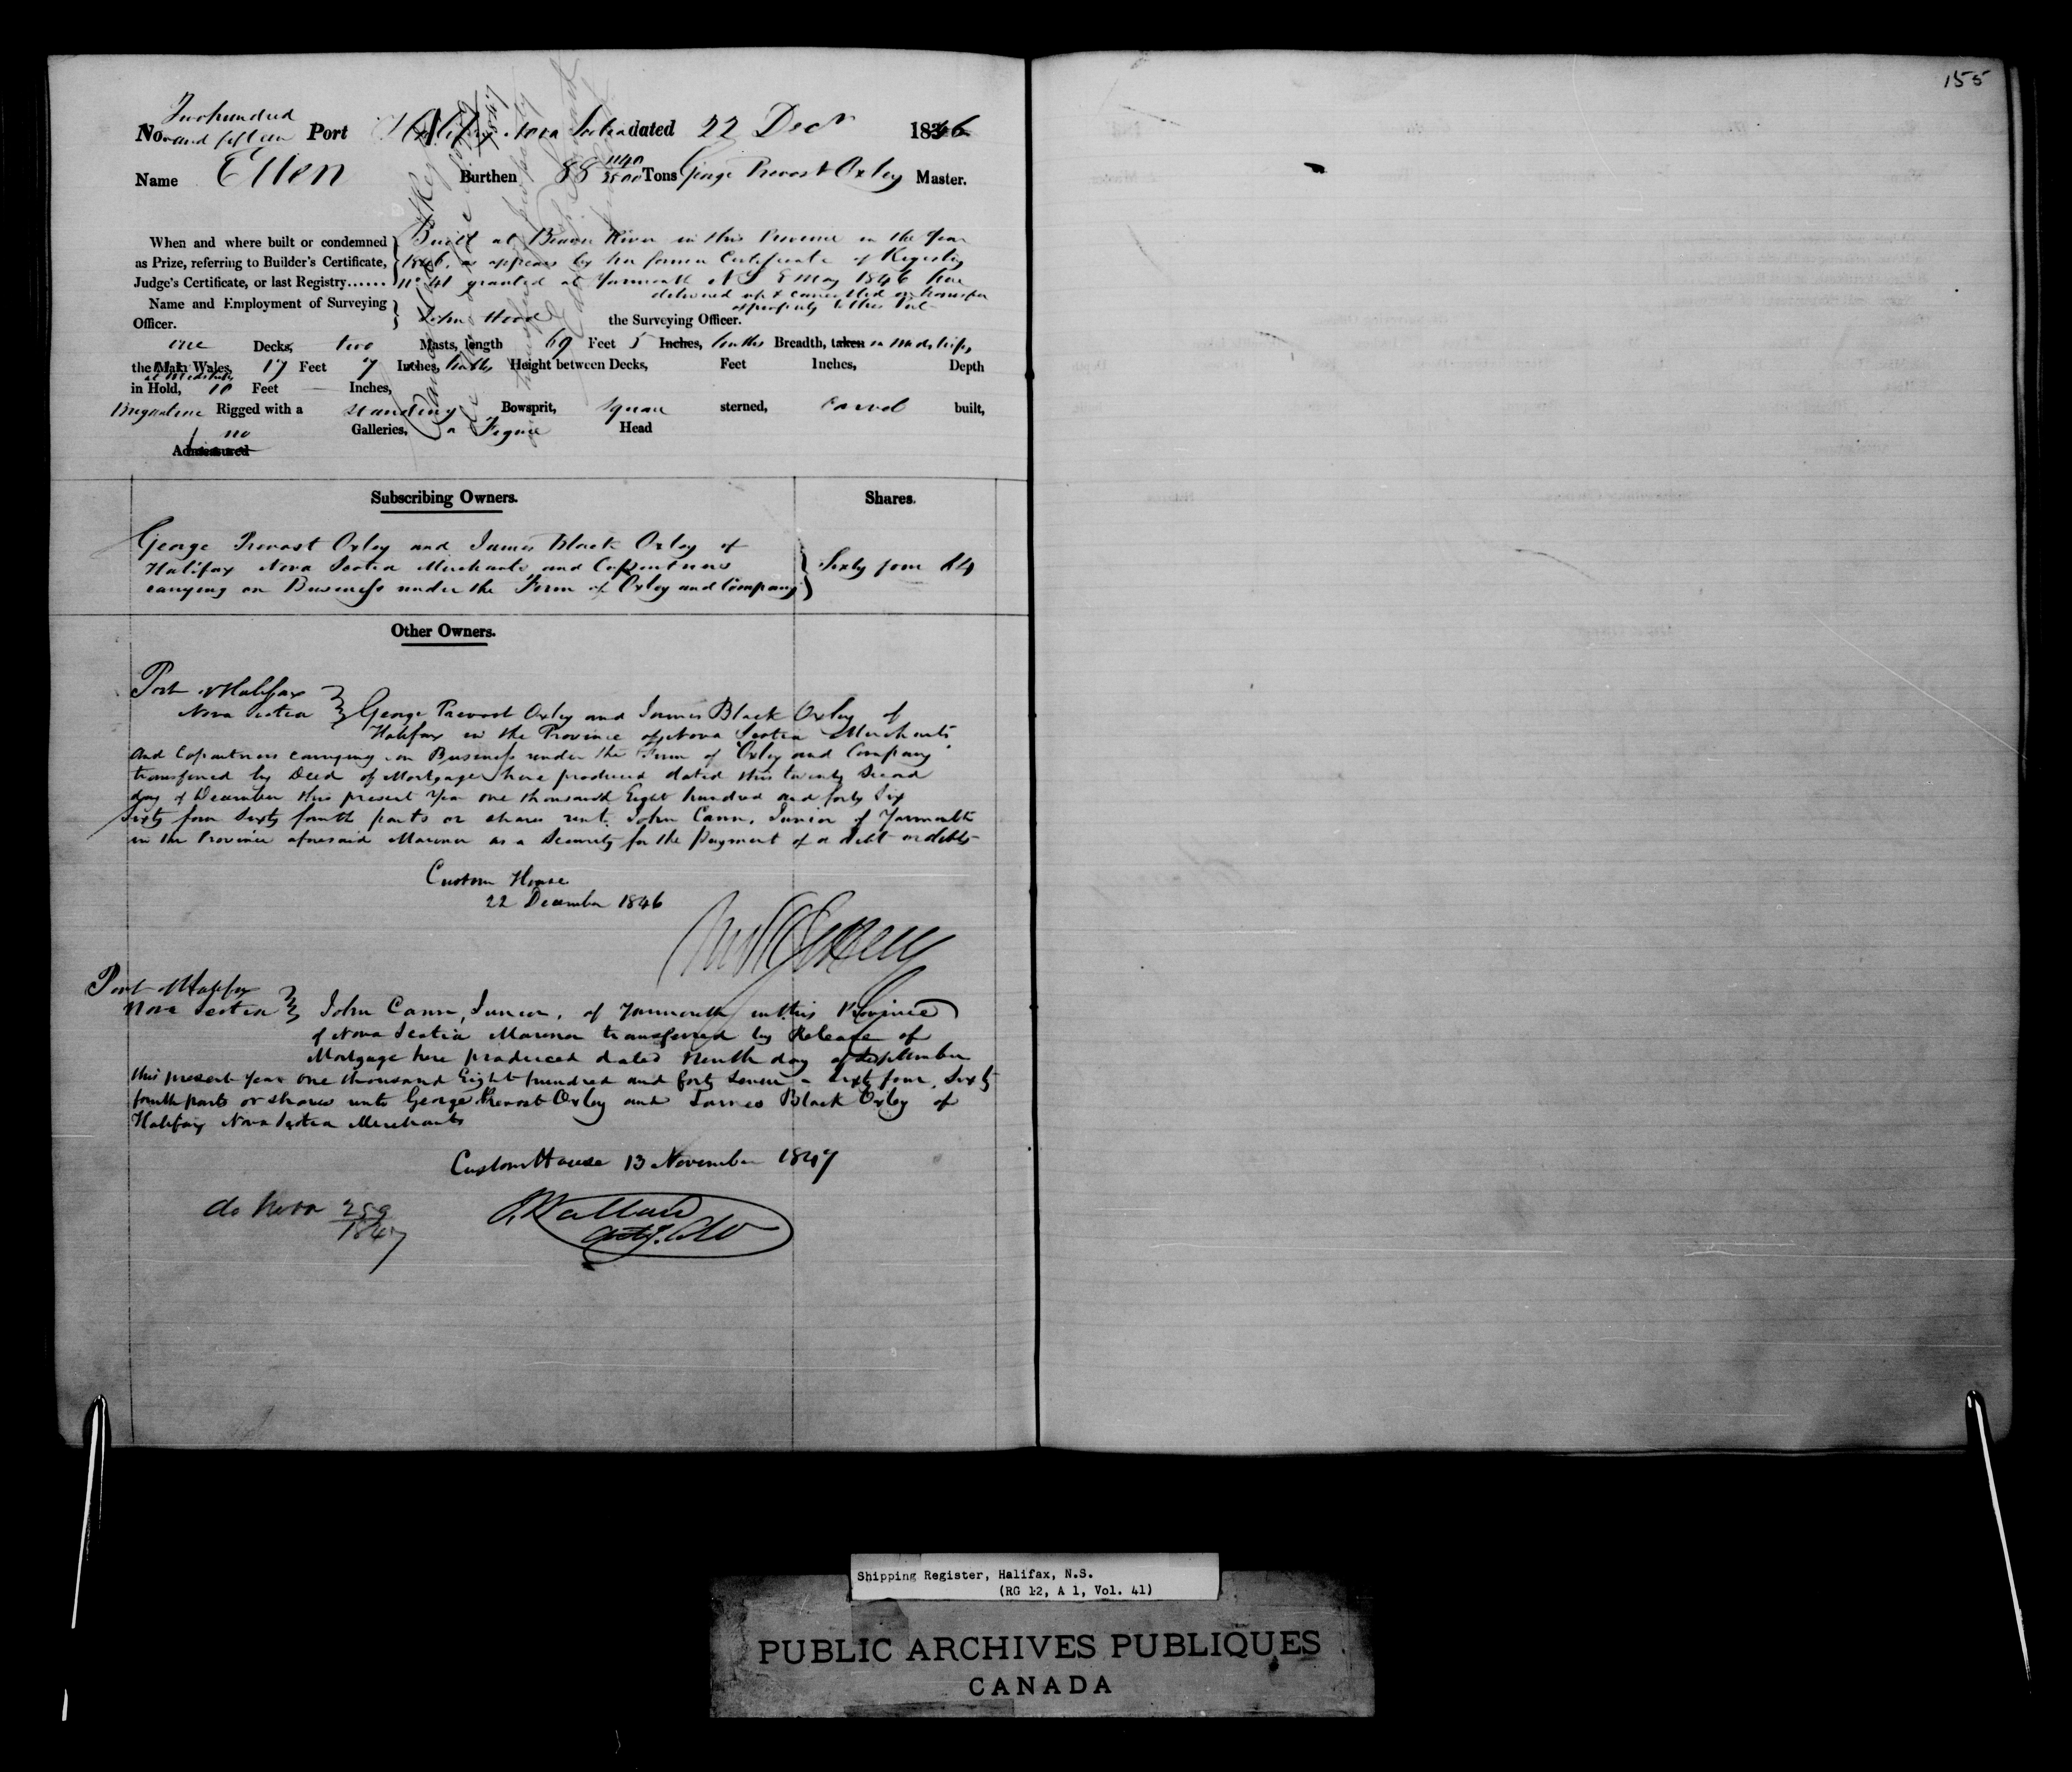 155
Two hundred
No. and fifteen Port Halifax Nova Scotia dated 22 Decr 1846
Name Ellen Burthen 88 1140/3500 Tons George Prevost Oxley Master.
When and where built or condemned
as Prize, referring to Builder's Certificate,
Judge's Certificate, or last Registry......
Built at Beaver River in this Province in the Year
1846, as appears by her former Certificate of Registry
No 41 granted at Yarmouth N S 8 May 1846 here
delivered up & cancelled on transfer
of property to this Port
Name and Employment of Surveying
Officer.
John Wood the Surveying Officer.
one Decks, two Masts, length 69 Feet 5 Inches, tenths Breadth, taken in Midships,
the Main Wales, 17 Feet 7 Inches, tenths Height between Decks, Feet Inches, Depth
at Midships
in Hold, 10 Feet — Inches,
Brigantine Rigged with a standing Bowsprit, Square sterned, Carvel built,
no Galleries, a Figure Head
Admeasured
Subscribing Owners. Shares.
George Prevost Oxley and James Black Oxley of
Halifax Nova Scotia Merchants and Copartners
carrying on Business under the Firm of Oxley and Company
Sixty four 64
Other Owners.
Port of Halifax
Nova Scotia George Prevost Oxley and James Black Oxley of
Halifax in the Province of Nova Scotia Merchants
and Copartners carrying on Business under the Firm of Oxley and Company
transferred by Deed of Mortgage here produced dated this twenty Second
day of December this present Year one thousand Eight hundred and forty Six
Sixty four Sixty fourth parts or shares unto John Cann, Junior of Yarmouth
in the Province aforesaid Mariner as a Security for the Payment of a debt or debts
Custom House
22 December 1846
Port of Halifax
Nova Scotia John Cann, Junior, of Yarmouth in this Province
of Nova Scotia Mariner transferred by Release of
Mortgage here produced dated Ninth day of September
this present Year one thousand Eight hundred and forty Seven - Sixty four, Sixty
fourth parts or shares unto George Prevost Oxley and James Black Oxley of
Halifax Nova Scotia Merchants
Custom House 13 November 1847
de novo 259
1847
Shipping Register, Halifax, N.S.
(RG 12, A 1, Vol. 41)
PUBLIC ARCHIVES PUBLIQUES
CANADA